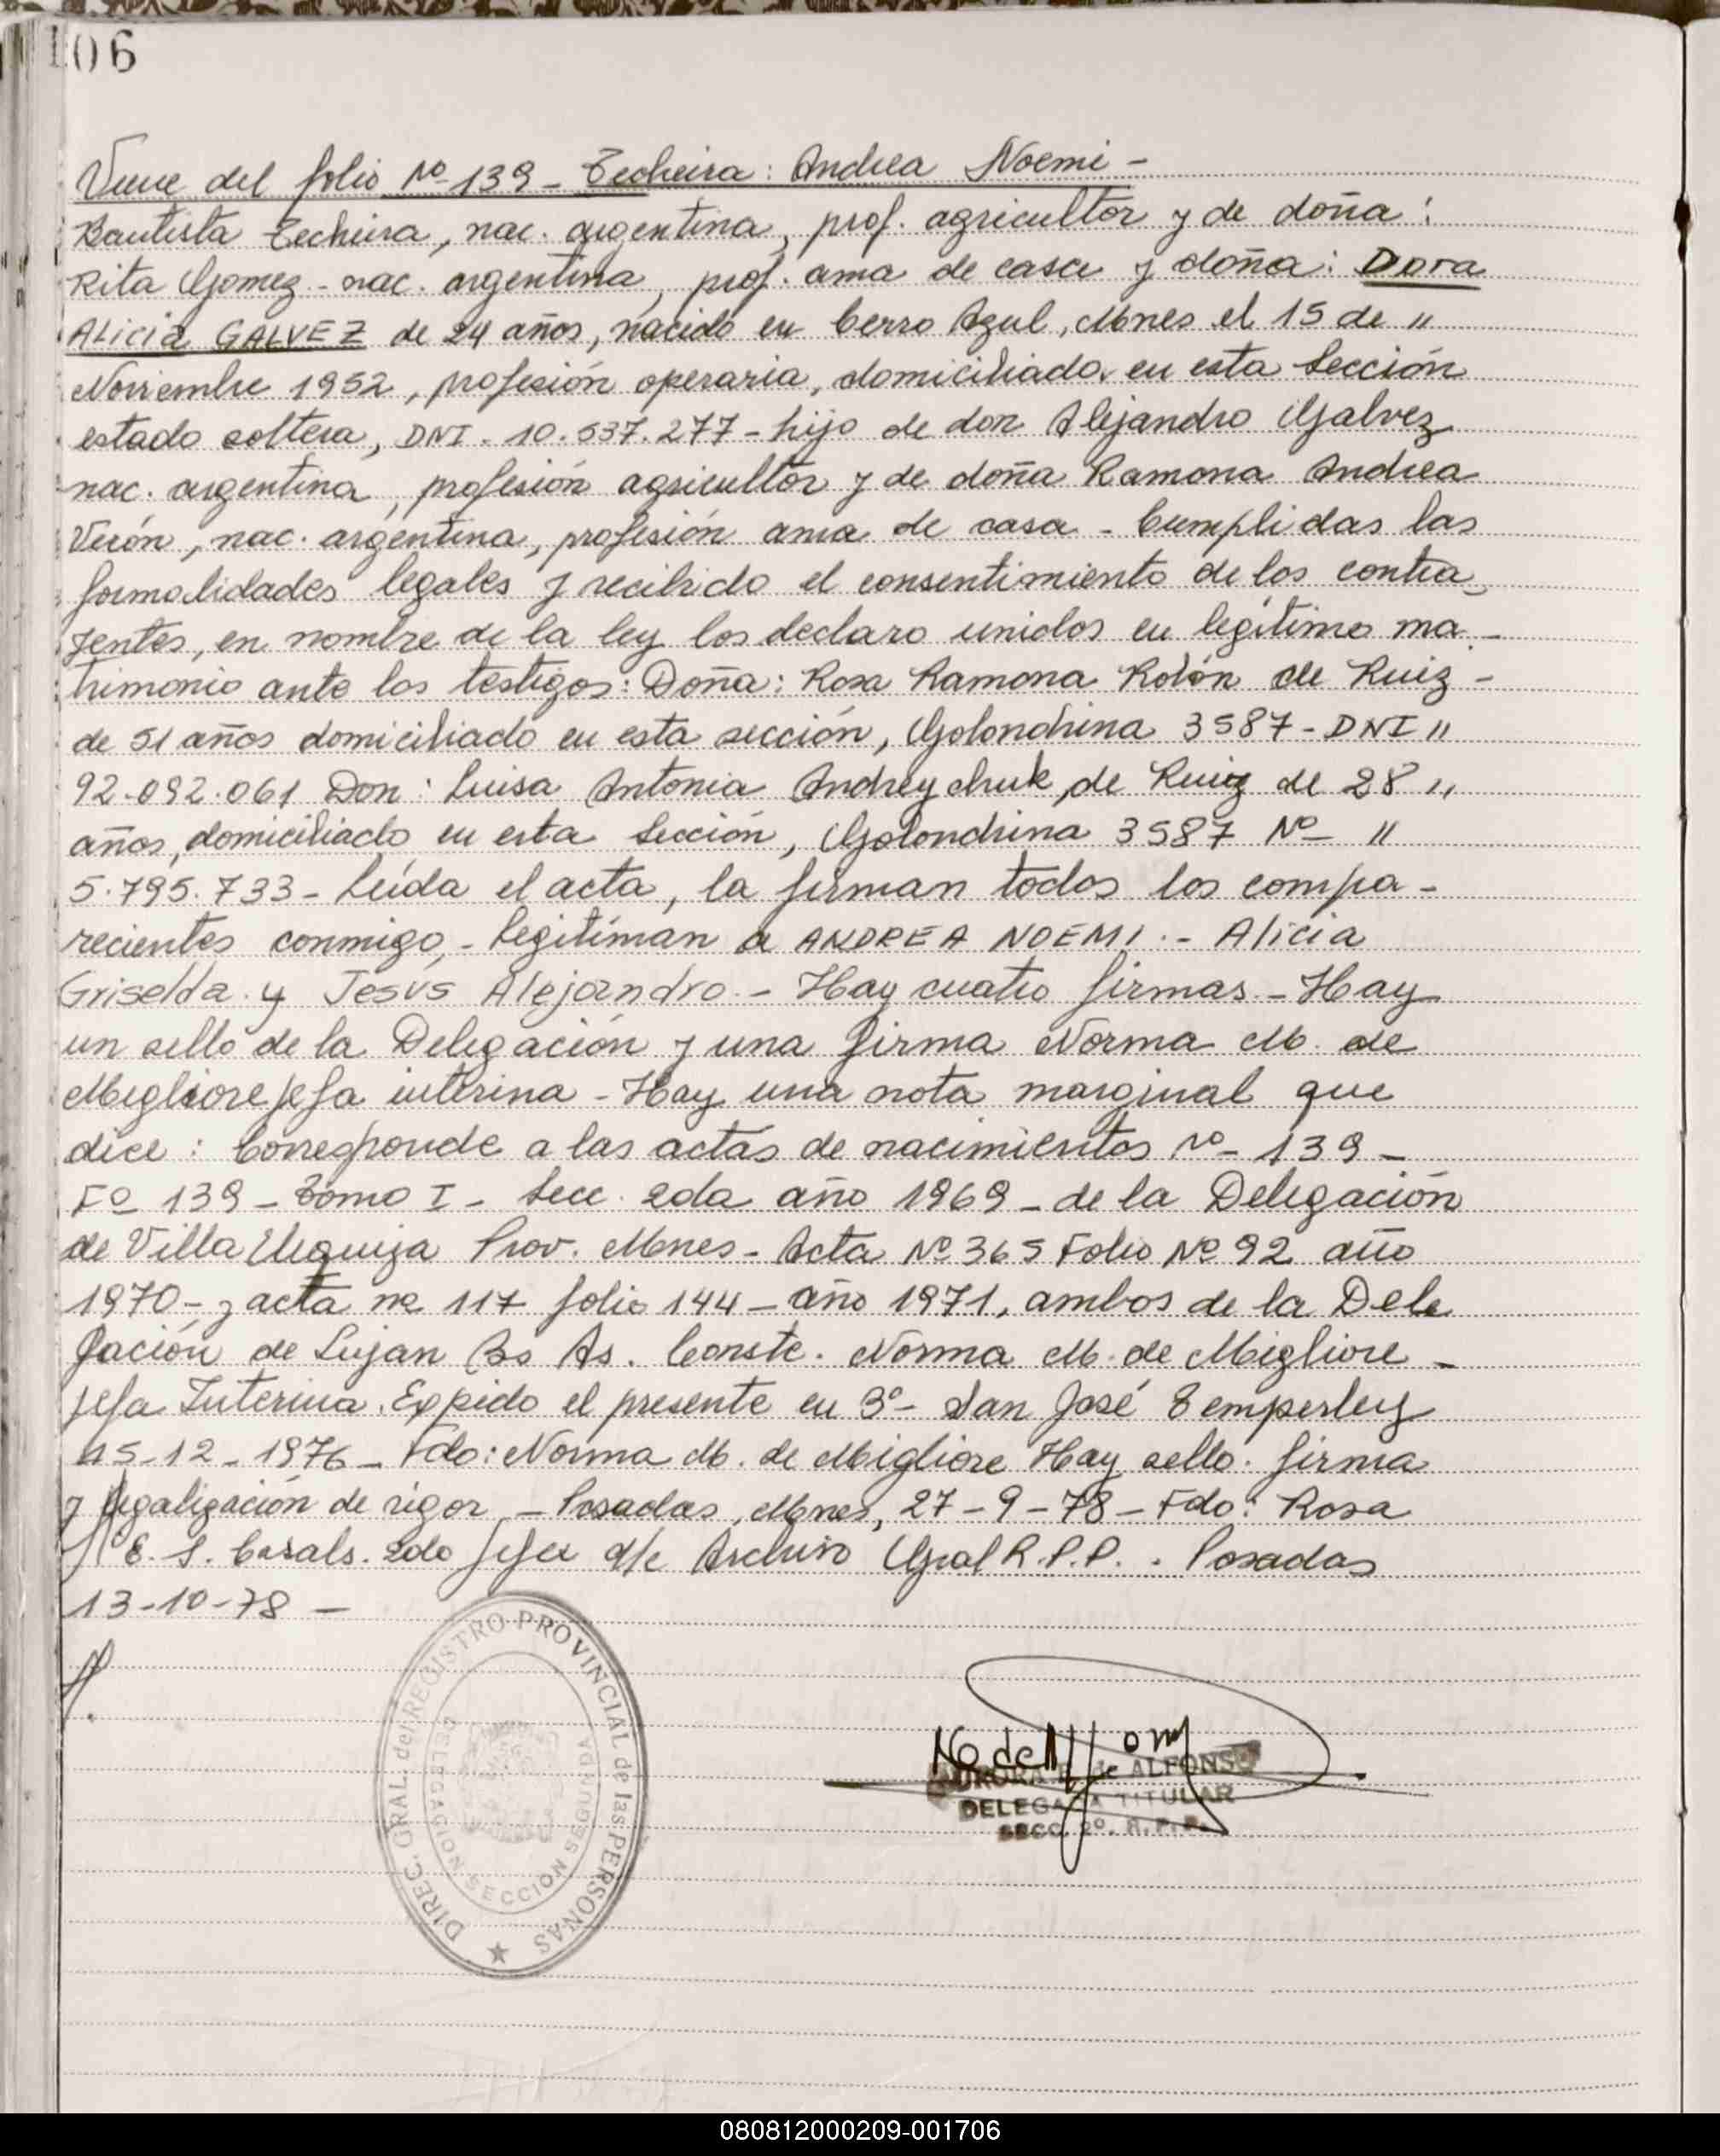 106
Viene del folio Nº 139 - Techeira: Andrea Noemi -
Bautista Techeira, nac. argentina, prof. agricultor y de doña:
Rita Gomez - nac. argentina, prof. ama de casa y doña: Dora
Alicia GALVEZ de 24 años, nacido en Cerro Azul, Mnes el 15 de "
Noviembre 1952, profesión operaria, domiciliada en esta Sección
estado soltera, DNI - 10.537.277 - hijo de don Alejandro Galvez
nac. argentina, profesión agricultor y de doña Ramona Andrea
Verón, nac. argentina, profesión ama de casa - Cumplidas las
formalidades legales y recibido el consentimiento de los contra_
yentes, en nombre de la ley los declaro unidos en legítimo ma -
trimonio ante los testigos: Doña: Rosa Ramona Rolón de Ruiz -
de 51 años domiciliado en esta sección, Golondrina 3587 - DNI "
92.092.061 Don: Luisa Antonia Andreychuk de Ruiz de 28 "
años, domiciliado en esta Sección, Golondrina 3587 Nº "
5.795.733 - Leída el acta, la firman todos los compa -
recientes conmigo, - Legitíman a ANDREA NOEMI. - Alicia
Griselda y Jesús Alejandro. - Hay cuatro firmas. - Hay
un sello de la Delegación y una firma Norma M. de
Migliore jefa interina - Hay una nota marginal que
dice: Corresponde a las actas de nacimientos Nº 139 -
Fº 139 - Tomo I - Secc. 2da año 1969 - de la Delegación
de Villa Urquiza Prov. Mnes - Acta Nº 365 Folio Nº 92 año
1970 - y acta nº 117 folio 144 - año 1971, ambos de la Dele
gación de Lujan Bs As. Conste. Norma M. de Migliore -
jefa Interina. Expido el presente en 3º - San José Temperley
15-12-1976 - Fdo: Norma M. de Migliore Hay sello. firma
y legalización de rigor - Posadas, Mnes, 27-9-78 - Fdo: Rosa
E. S. Casals. 2do Jefa d/e Archivo Gral R.P.P. . Posadas
13-10-78 -
DIREC. GRAL. del REGISTRO PROVINCIAL de las PERSONAS
DELEGACION SECCION SEGUNDA
AURORA de ALFONSO
DELEGADA TITULAR
SECC. 2º. R.P.P.
080812000209-001706